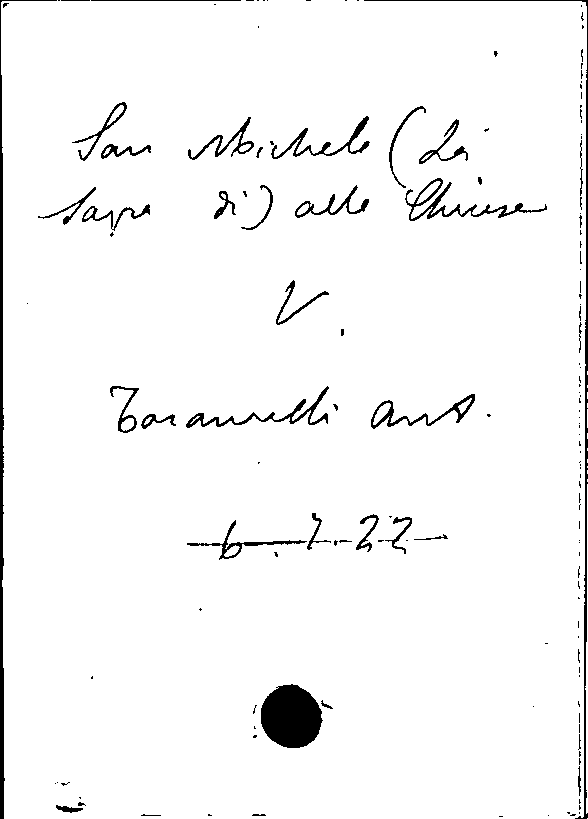 San Michele (La
Sagra di) alla Chiusa
V.
Taramelli Ant.
6.7.22